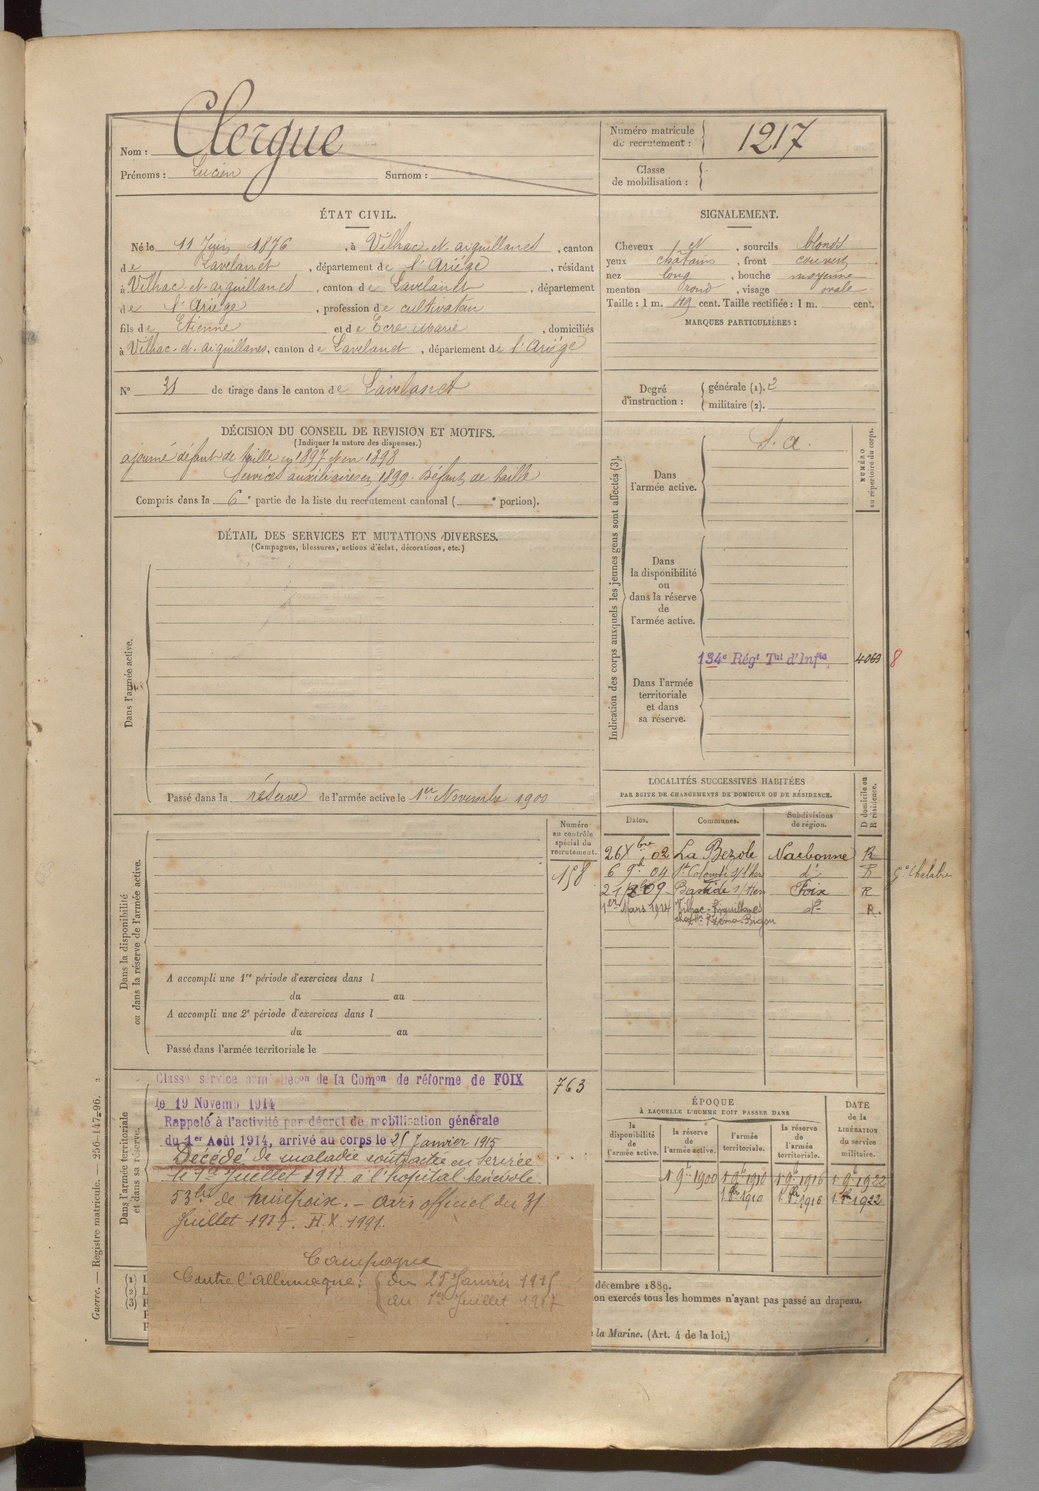 Nom : Clergue
Prénoms : Lucien Surnom :
Numéro matricule de recrutement : 1217
Classe de mobilisation :
ÉTAT CIVIL.
Né le 11 Juin 1876, à Vilhac-et-aiguillanes, canton
de Lavelanet, département de l'Ariége, résidant
à Vilhac-et-aiguillanes, canton de Lavelanet, département
de l'Ariége, profession de cultivateur
fils de Etienne et de Ecre Marie, domiciliés
à Vilhac-et-aiguillanes, canton de Lavelanet, département de l'Ariége
SIGNALEMENT.
Cheveux et, sourcils blonds
yeux chatains, front couvert
nez long, bouche moyenne
menton rond, visage ovale
Taille : 1 m. cent. Taille rectifiée : 1 m. cent.
MARQUES PARTICULIÈRES :
N° 31 de tirage dans le canton de Lavelanet
Degré d'instruction : générale (1). 2
militaire (2).
DÉCISION DU CONSEIL DE REVISION ET MOTIFS.
(Indiquer la nature des dispenses.)
ajourné défaut de taille en 1897 et en 1898
Services auxiliaires en 1899. Défaut de taille
Compris dans la 6e partie de la liste du recrutement cantonal ( e portion).
DÉTAIL DES SERVICES ET MUTATIONS DIVERSES.
(Campagnes, blessures, actions d'éclat, décorations, etc.)
Dans l'armée active.
Passé dans la réserve de l'armée active le 1er Novembre 1900
Indication des corps auxquels les jeunes gens sont affectés (3).
NUMÉRO au répertoire du corps.
Dans l'armée active. S. a.
Dans la disponibilité ou dans la réserve de l'armée active.
134e Régt Tal d'Infie 4063 8
Dans l'armée territoriale et dans sa réserve.
Dans la disponibilité ou dans la réserve de l'armée active.
Numéro au contrôle spécial du recrutement.
158
A accompli une 1re période d'exercices dans l
du au
A accompli une 2e période d'exercices dans l
du au
Passé dans l'armée territoriale le
LOCALITÉS SUCCESSIVES HABITÉES
PAR SUITE DE CHANGEMENTS DE DOMICILE OU DE RÉSIDENCE.
D domicile ou R résidence.
Dates. Communes. Subdivisions de région.
26 Xbre 02 La Bezole Narbonne R
6 9b 04 Ste Colombe s/l'hers d° R
09 Bastide s/l'Hers Foix R
1er Mars 1914 Vilhac-Aiguillanes d° R.
Dans l'armée territoriale et dans sa réserve.
Classé service armé de la Comon de réforme de FOIX
le 19 Novemb 1914
Rappelé à l'activité par décret de mobilisation générale
du 1er Août 1914, arrivé au corps le 25 Janvier 1915
763
Décédé de maladie contractée en service
le 1er Juillet 1917 à l'hopital bénévole
53bis de mirepoix. - avis officiel du 31
Juillet 1917.
Campagne
Contre l'allemagne : du 25 Janvier 1915
au 1er Juillet 1917
ÉPOQUE
À LAQUELLE L'HOMME DOIT PASSER DANS
la disponibilité de l'armée active. la réserve de l'armée active. l'armée territoriale. la réserve de l'armée territoriale.
DATE de la LIBÉRATION du service militaire.
1 9b 1900 1 9b 1910 1 9b 1916 1 9b 1922
1 1910 1 1916 1 1922
(1)
(2)
(3)
décembre 1889.
on exercés tous les hommes n'ayant pas passé au drapeau.
la Marine. (Art. 4 de la loi.)
Guerre. — Registre matricule. — 256-147-96.